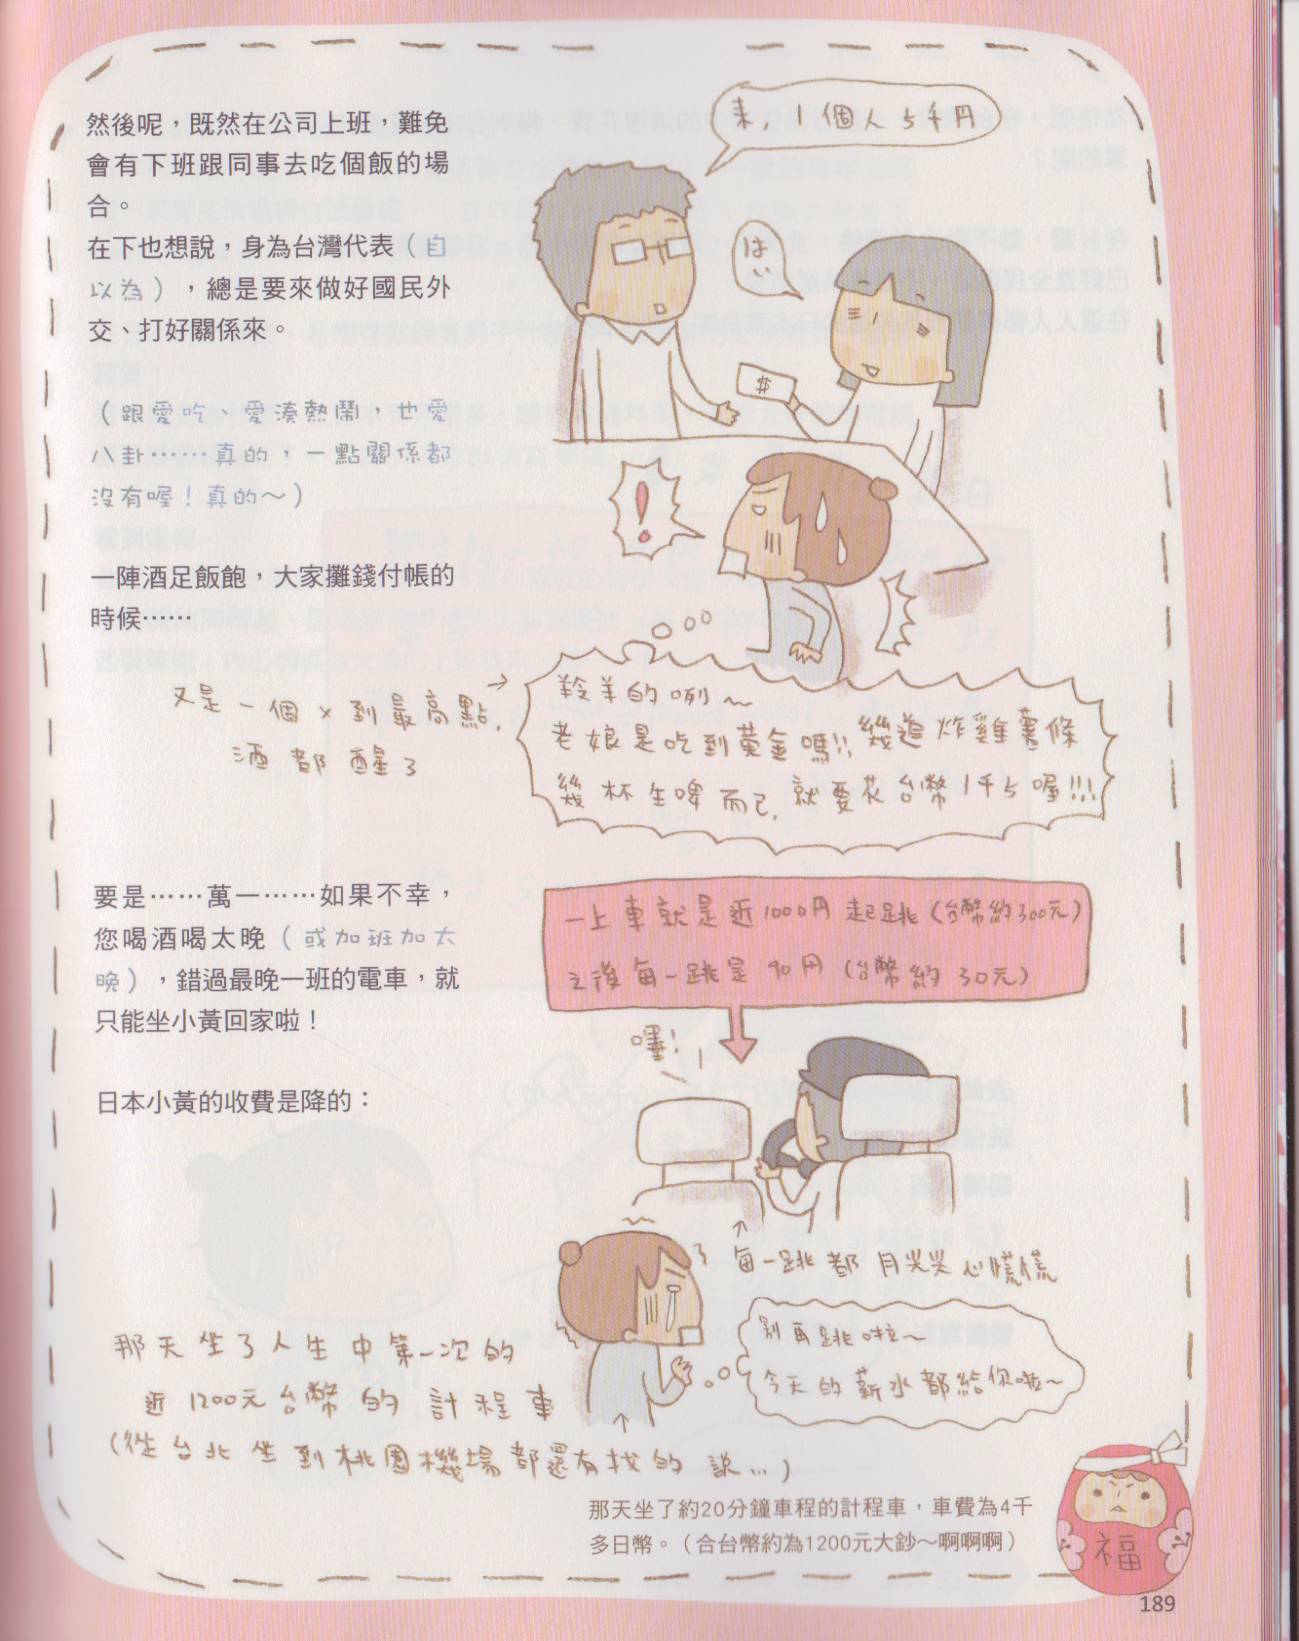 然後呢，既然在公司上班，難免
會有下班跟同事去吃個飯的場
合。
在下也想說，身為台灣代表（自
以為），總是要來做好國民外
交、打好關係來。
（跟愛吃、愛湊熱鬧，也愛
八卦……真的，一點關係都
沒有喔！真的～）
一陣酒足飯飽，大家攤錢付帳的
時候……
來，1個人5千円
はい
$
!
羚羊的咧～
老娘是吃到黃金嗎!!幾道炸雞薯條
幾杯生啤而已，就要花台幣1千5喔!!!
又是一個x到最高點，
酒都醒了
要是……萬一……如果不幸，
您喝酒喝太晚（或加班加太
晚），錯過最晚一班的電車，就
只能坐小黃回家啦！
日本小黃的收費是降的：
一上車就是近1000円起跳（台幣約300元）
之後每一跳是90円（台幣約30元）
嗶!
每一跳都月尖尖心慌慌
別再跳啦～
今天的薪水都給你啦～
那天坐了人生中第一次的
近1200元台幣的計程車
（從台北坐到桃園機場都還有找的說…）
那天坐了約20分鐘車程的計程車，車費為4千
多日幣。（合台幣約為1200元大鈔～啊啊啊）
福
189